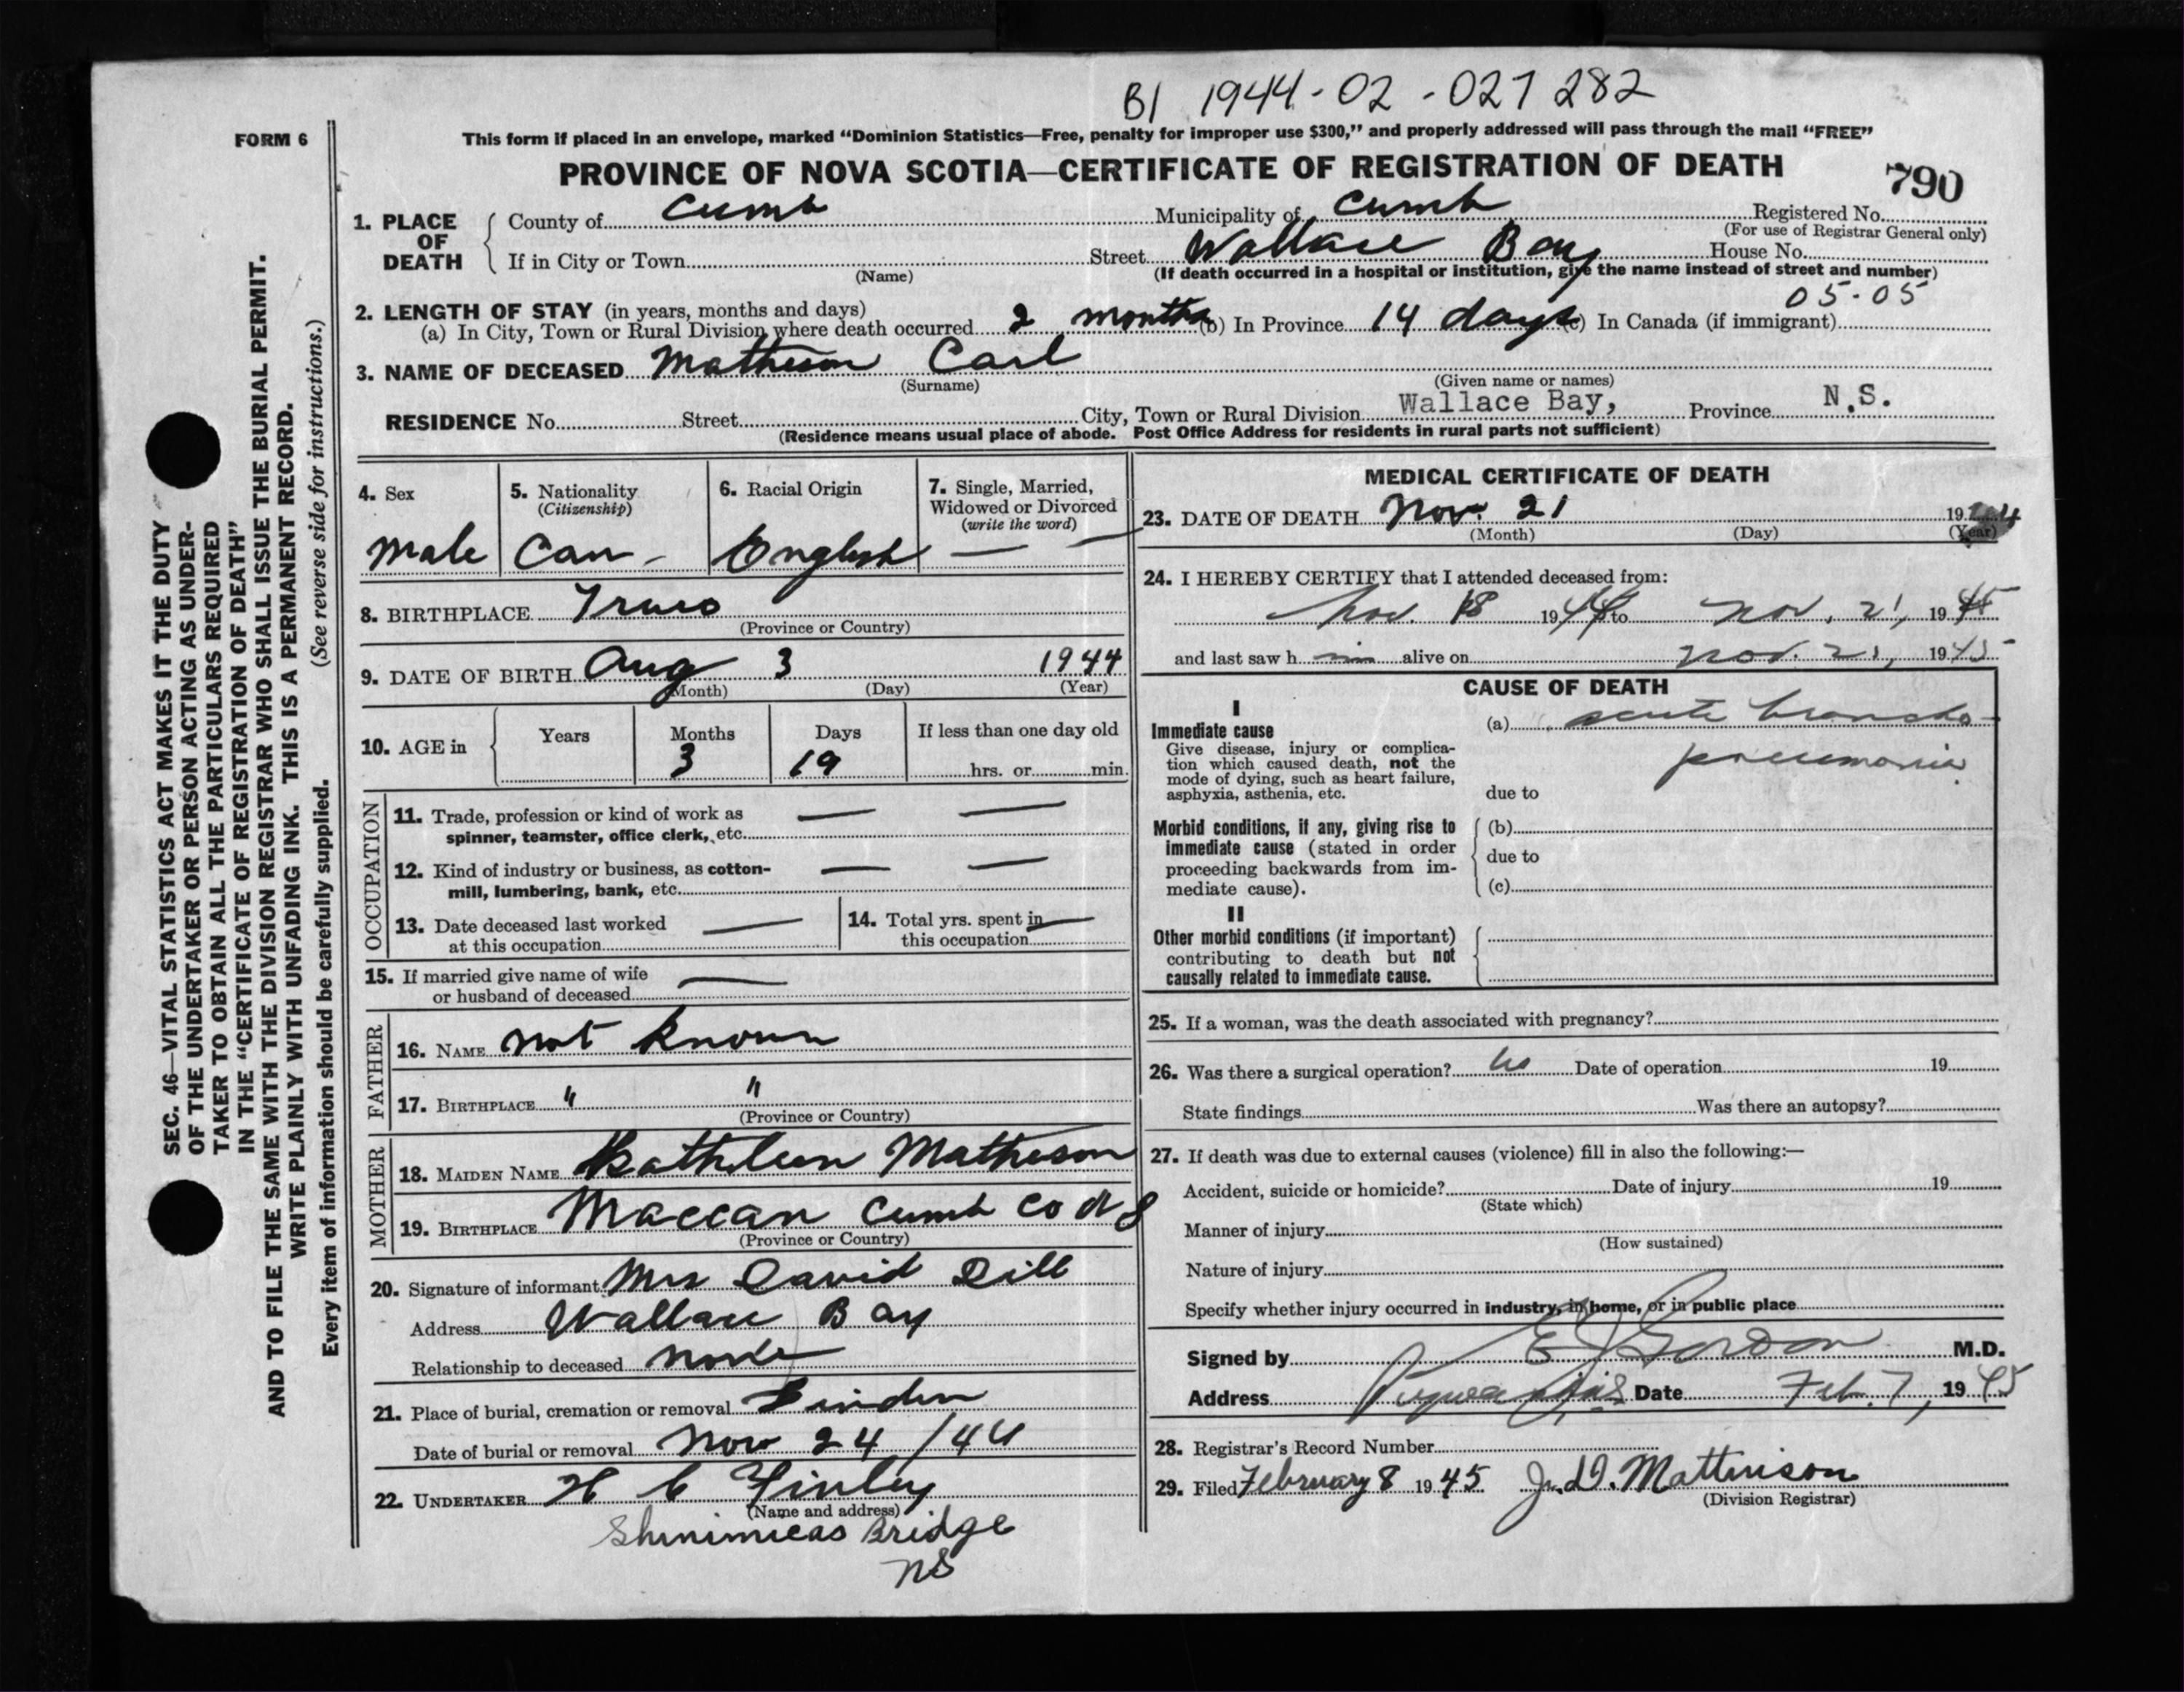 B1 1944-02-027282
FORM 6
This form if placed in an envelope, marked "Dominion Statistics—Free, penalty for improper use $300," and properly addressed will pass through the mail "FREE"
PROVINCE OF NOVA SCOTIA—CERTIFICATE OF REGISTRATION OF DEATH
790
1. PLACE OF DEATH County of Cumb Municipality of Cumb Registered No.
(For use of Registrar General only)
If in City or Town Street Wallace Bay House No.
(Name) (If death occurred in a hospital or institution, give the name instead of street and number)
05-05
2. LENGTH OF STAY (in years, months and days)
(a) In City, Town or Rural Division where death occurred 2 months (b) In Province 14 days (c) In Canada (if immigrant)
3. NAME OF DECEASED Matheson Carl
(Surname) (Given name or names)
RESIDENCE No. Street City, Town or Rural Division Wallace Bay, Province N.S.
(Residence means usual place of abode. Post Office Address for residents in rural parts not sufficient)
4. Sex 5. Nationality (Citizenship) 6. Racial Origin 7. Single, Married, Widowed or Divorced (write the word)
Male Can - English — —
8. BIRTHPLACE Truro
(Province or Country)
9. DATE OF BIRTH Aug 3 1944
(Month) (Day) (Year)
10. AGE in Years Months Days If less than one day old
3 19 hrs. or min.
OCCUPATION
11. Trade, profession or kind of work as — —
spinner, teamster, office clerk, etc.
12. Kind of industry or business, as cotton- — —
mill, lumbering, bank, etc.
13. Date deceased last worked — 14. Total yrs. spent in —
at this occupation this occupation
15. If married give name of wife —
or husband of deceased
FATHER
16. NAME not known
17. BIRTHPLACE " "
(Province or Country)
MOTHER
18. MAIDEN NAME Kathleen Matheson
19. BIRTHPLACE Maccan Cumb Co N S
(Province or Country)
20. Signature of informant Mrs David Dill
Address Wallace Bay
Relationship to deceased None
21. Place of burial, cremation or removal Linden
Date of burial or removal Nov 24/44
22. UNDERTAKER H C Finley
(Name and address)
Shinimicas Bridge
NS
MEDICAL CERTIFICATE OF DEATH
23. DATE OF DEATH Nov. 21 19
(Month) (Day) (Year)
24. I HEREBY CERTIFY that I attended deceased from:
Nov. 18 1944 to Nov. 21, 1945
and last saw him alive on Nov. 21, 1945
CAUSE OF DEATH
I
Immediate cause (a) acute broncho-
Give disease, injury or complica- pneumonia
tion which caused death, not the
mode of dying, such as heart failure,
asphyxia, asthenia, etc. due to
Morbid conditions, if any, giving rise to (b)
immediate cause (stated in order due to
proceeding backwards from im-
mediate cause). (c)
II
Other morbid conditions (if important)
contributing to death but not
causally related to immediate cause.
25. If a woman, was the death associated with pregnancy?
26. Was there a surgical operation? no Date of operation 19
State findings Was there an autopsy?
27. If death was due to external causes (violence) fill in also the following:—
Accident, suicide or homicide? Date of injury 19
(State which)
Manner of injury
(How sustained)
Nature of injury
Specify whether injury occurred in industry, in home, or in public place
Signed by E J Gordon M.D.
Address Date Feb. 7, 1945
28. Registrar's Record Number
29. Filed February 8 1945 Mattinson
(Division Registrar)
SEC. 46—VITAL STATISTICS ACT MAKES IT THE DUTY
OF THE UNDERTAKER OR PERSON ACTING AS UNDER-
TAKER TO OBTAIN ALL THE PARTICULARS REQUIRED
IN THE "CERTIFICATE OF REGISTRATION OF DEATH"
AND TO FILE THE SAME WITH THE DIVISION REGISTRAR WHO SHALL ISSUE THE BURIAL PERMIT.
WRITE PLAINLY WITH UNFADING INK. THIS IS A PERMANENT RECORD.
Every item of information should be carefully supplied. (See reverse side for instructions.)